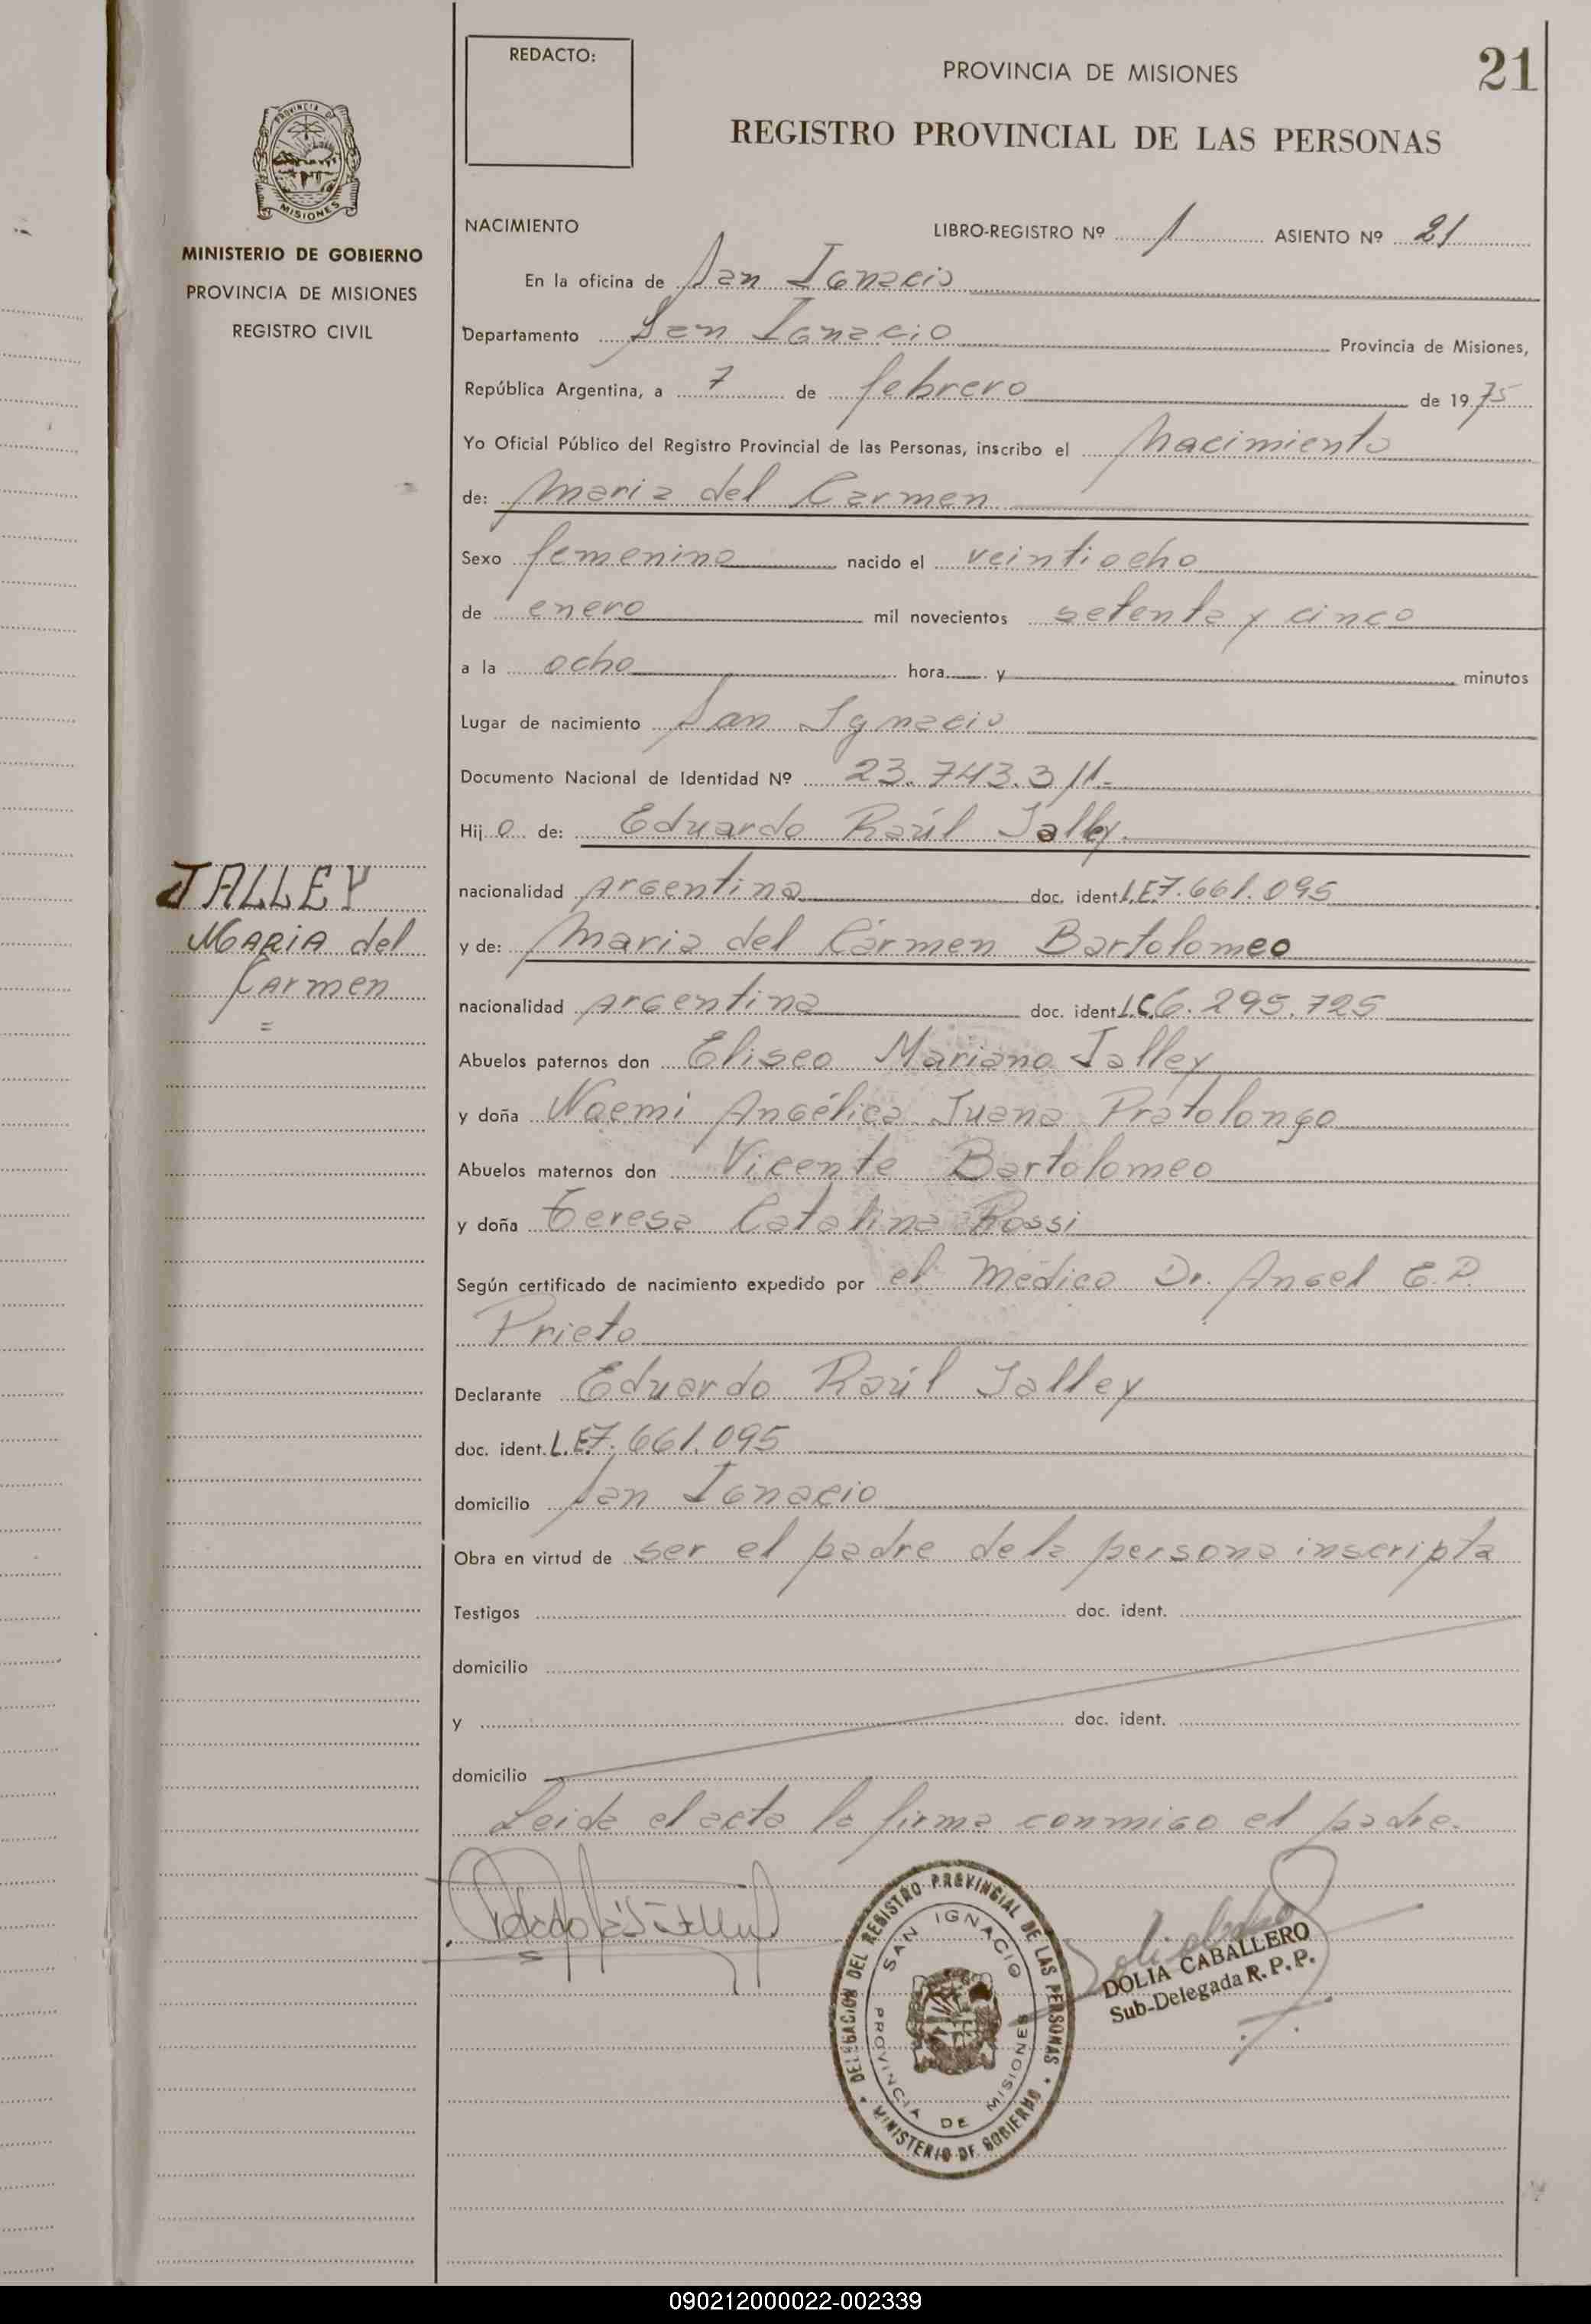 REDACTO:
PROVINCIA DE MISIONES
21
REGISTRO PROVINCIAL DE LAS PERSONAS
PROVINCIA DE
MISIONES
MINISTERIO DE GOBIERNO
PROVINCIA DE MISIONES
REGISTRO CIVIL
NACIMIENTO LIBRO-REGISTRO Nº 1 ASIENTO Nº 21
En la oficina de San Ignacio
Departamento San Ignacio Provincia de Misiones,
República Argentina, a 7 de febrero de 1975
Yo Oficial Público del Registro Provincial de las Personas, inscribo el Nacimiento
de: Maria del Carmen
Sexo femenino nacido el veintiocho
de enero mil novecientos setenta y cinco
a la ocho hora y minutos
Lugar de nacimiento San Ignacio
Documento Nacional de Identidad Nº 23.743.311.-
Hijo de: Eduardo Raúl Jalley.
nacionalidad Argentina doc. ident L.E 7.661.095
y de: Maria del Cármen Bartolomeo
nacionalidad Argentina doc. ident L.C 6.295.725
Abuelos paternos don Eliseo Mariano Jalley
y doña Noemi Angélica Juana Pratolongo
Abuelos maternos don Vicente Bartolomeo
y doña Teresa Catalina Rossi
Según certificado de nacimiento expedido por el Médico Dr. Angel E.P.
Prieto
Declarante Eduardo Raúl Jalley
doc. ident. L.E 7.661.095
domicilio San Ignacio
Obra en virtud de ser el padre de la persona inscripta
Testigos doc. ident.
domicilio
y doc. ident.
domicilio
Leida el acta la firma conmigo el padre.
JALLEY
MARIA del
CARMEN
=
DELEGACION DEL REGISTRO PROVINCIAL DE LAS PERSONAS
MINISTERIO DE GOBIERNO
SAN IGNACIO
PROVINCIA DE MISIONES
DOLIA CABALLERO
Sub-Delegada R.P.P.
090212000022-002339